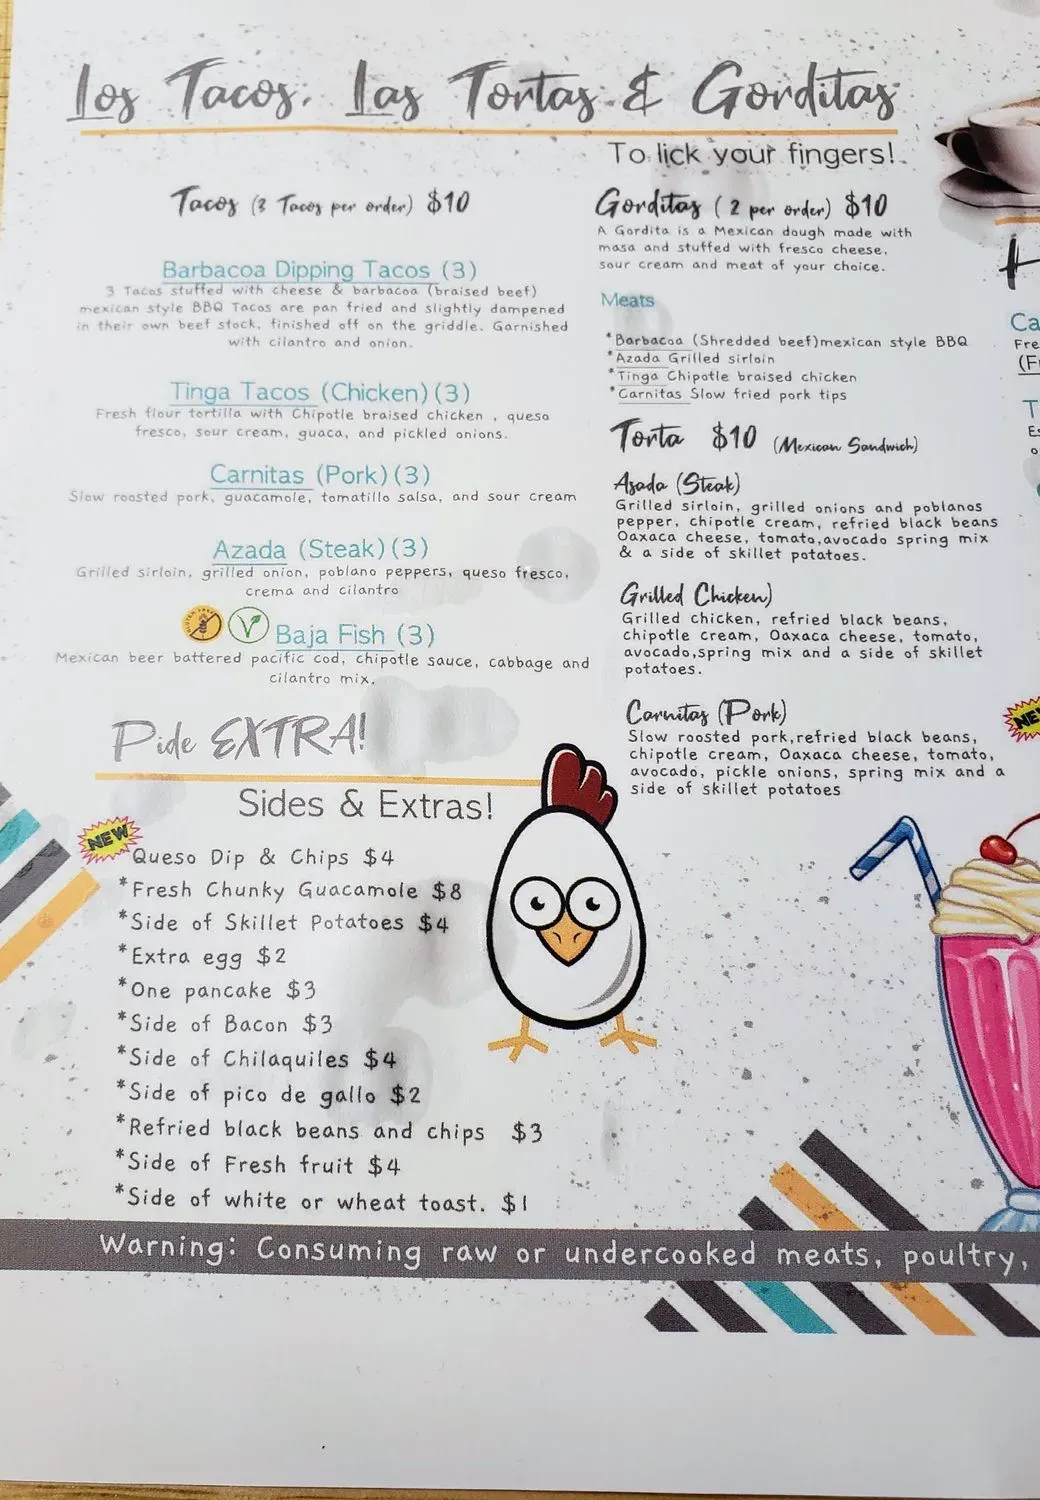 Los Tacos, Las Tortas & Gorditas
To lick your fingers!
Tacos (3 Tacos per order) $10
Barbacoa Dipping Tacos (3)
3 Tacos stuffed with cheese & barbacoa (braised beef)
mexican style BBQ Tacos are pan fried and slightly dampened
in their own beef stock, finished off on the griddle. Garnished
with cilantro and onion.
Tinga Tacos (Chicken)(3)
Fresh flour tortilla with Chipotle braised chicken , queso
fresco, sour cream, guaca, and pickled onions.
Carnitas (Pork)(3)
Slow roosted pork, guacamole, tomatillo salsa, and sour cream
Azada (Steak)(3)
Grilled sirloin, grilled onion, poblano peppers, queso fresco,
crema and cilantro
GLUTEN FREE V
Baja Fish (3)
Mexican beer battered pacific cod, chipotle sauce, cabbage and
cilantro mix.
Pide EXTRA!
Sides & Extras!
NEW
Queso Dip & Chips $4
*Fresh Chunky Guacamole $8
*Side of Skillet Potatoes $4
*Extra egg $2
*One pancake $3
*Side of Bacon $3
*Side of Chilaquiles $4
*Side of pico de gallo $2
*Refried black beans and chips $3
*Side of Fresh fruit $4
*Side of white or wheat toast. $1
Gorditas (2 per order) $10
A Gordita is a Mexican dough made with
masa and stuffed with fresco cheese,
sour cream and meat of your choice.
Meats
*Barbacoa (Shredded beef)mexican style BBQ
*Azada Grilled sirloin
*Tinga Chipotle braised chicken
*Carnitas Slow fried pork tips
Torta $10 (Mexican Sandwich)
Azada (Steak)
Grilled sirloin, grilled onions and poblanos
pepper, chipotle cream, refried black beans
Oaxaca cheese, tomato,avocado spring mix
& a side of skillet potatoes.
Grilled Chicken)
Grilled chicken, refried black beans,
chipotle cream, Oaxaca cheese, tomato,
avocado,spring mix and a side of skillet
potatoes.
Carnitas (Pork)
Slow roosted pork,refried black beans,
chipotle cream, Oaxaca cheese, tomato,
avocado, pickle onions, spring mix and a
side of skillet potatoes
H
Ca
Fre
(F
T
Es
o
NEW
Warning: Consuming raw or undercooked meats, poultry,